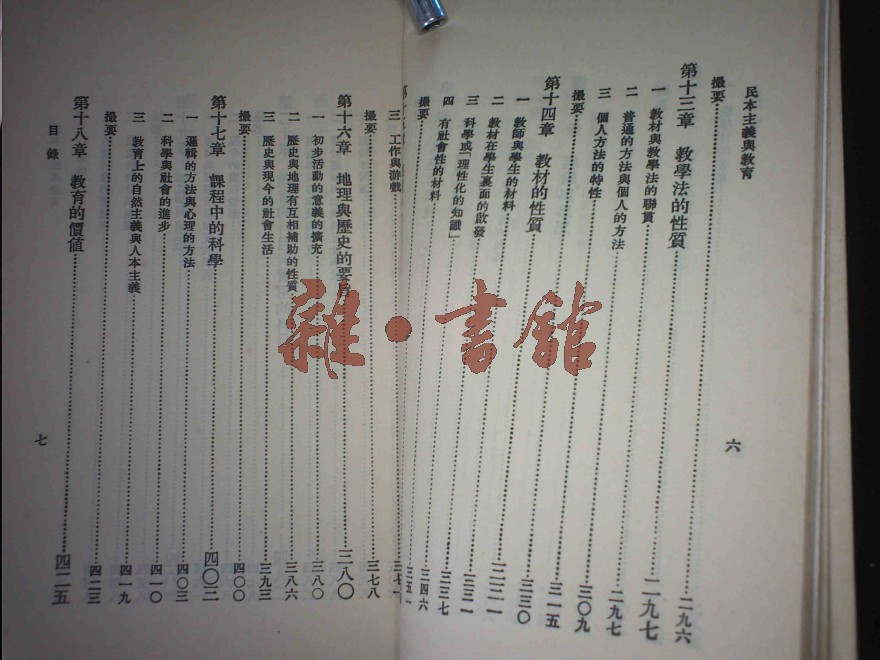 民本主義與教育
六
撮要 二九六
第十三章 教學法的性質 二九七
一 教材與教學法的聯貫 二九七
二 普通的方法與個人的方法 三〇九
三 個人方法的特性 三一五
撮要 三二〇
第十四章 教材的性質
一 教師與學生的材料
二 教材在學生裏面的啟發
三 科學或「理性化的知識」
四 有社會性的材料
撮要
三 工作與游戲 三七一
撮要 三七八
第十六章 地理與歷史的要旨 三八〇
一 初步活動的意義的擴充 三八〇
二 歷史與地理有互相補助的性質 三八六
三 歷史與現今的社會生活 三九三
撮要 四〇〇
第十七章 課程中的科學 四〇三
一 邏輯的方法與心理的方法 四〇三
二 科學與社會的進步 四一〇
三 教育上的自然主義與人本主義 四一九
撮要 四二三
第十八章 教育的價值 四二五
目錄
七
雜·書館